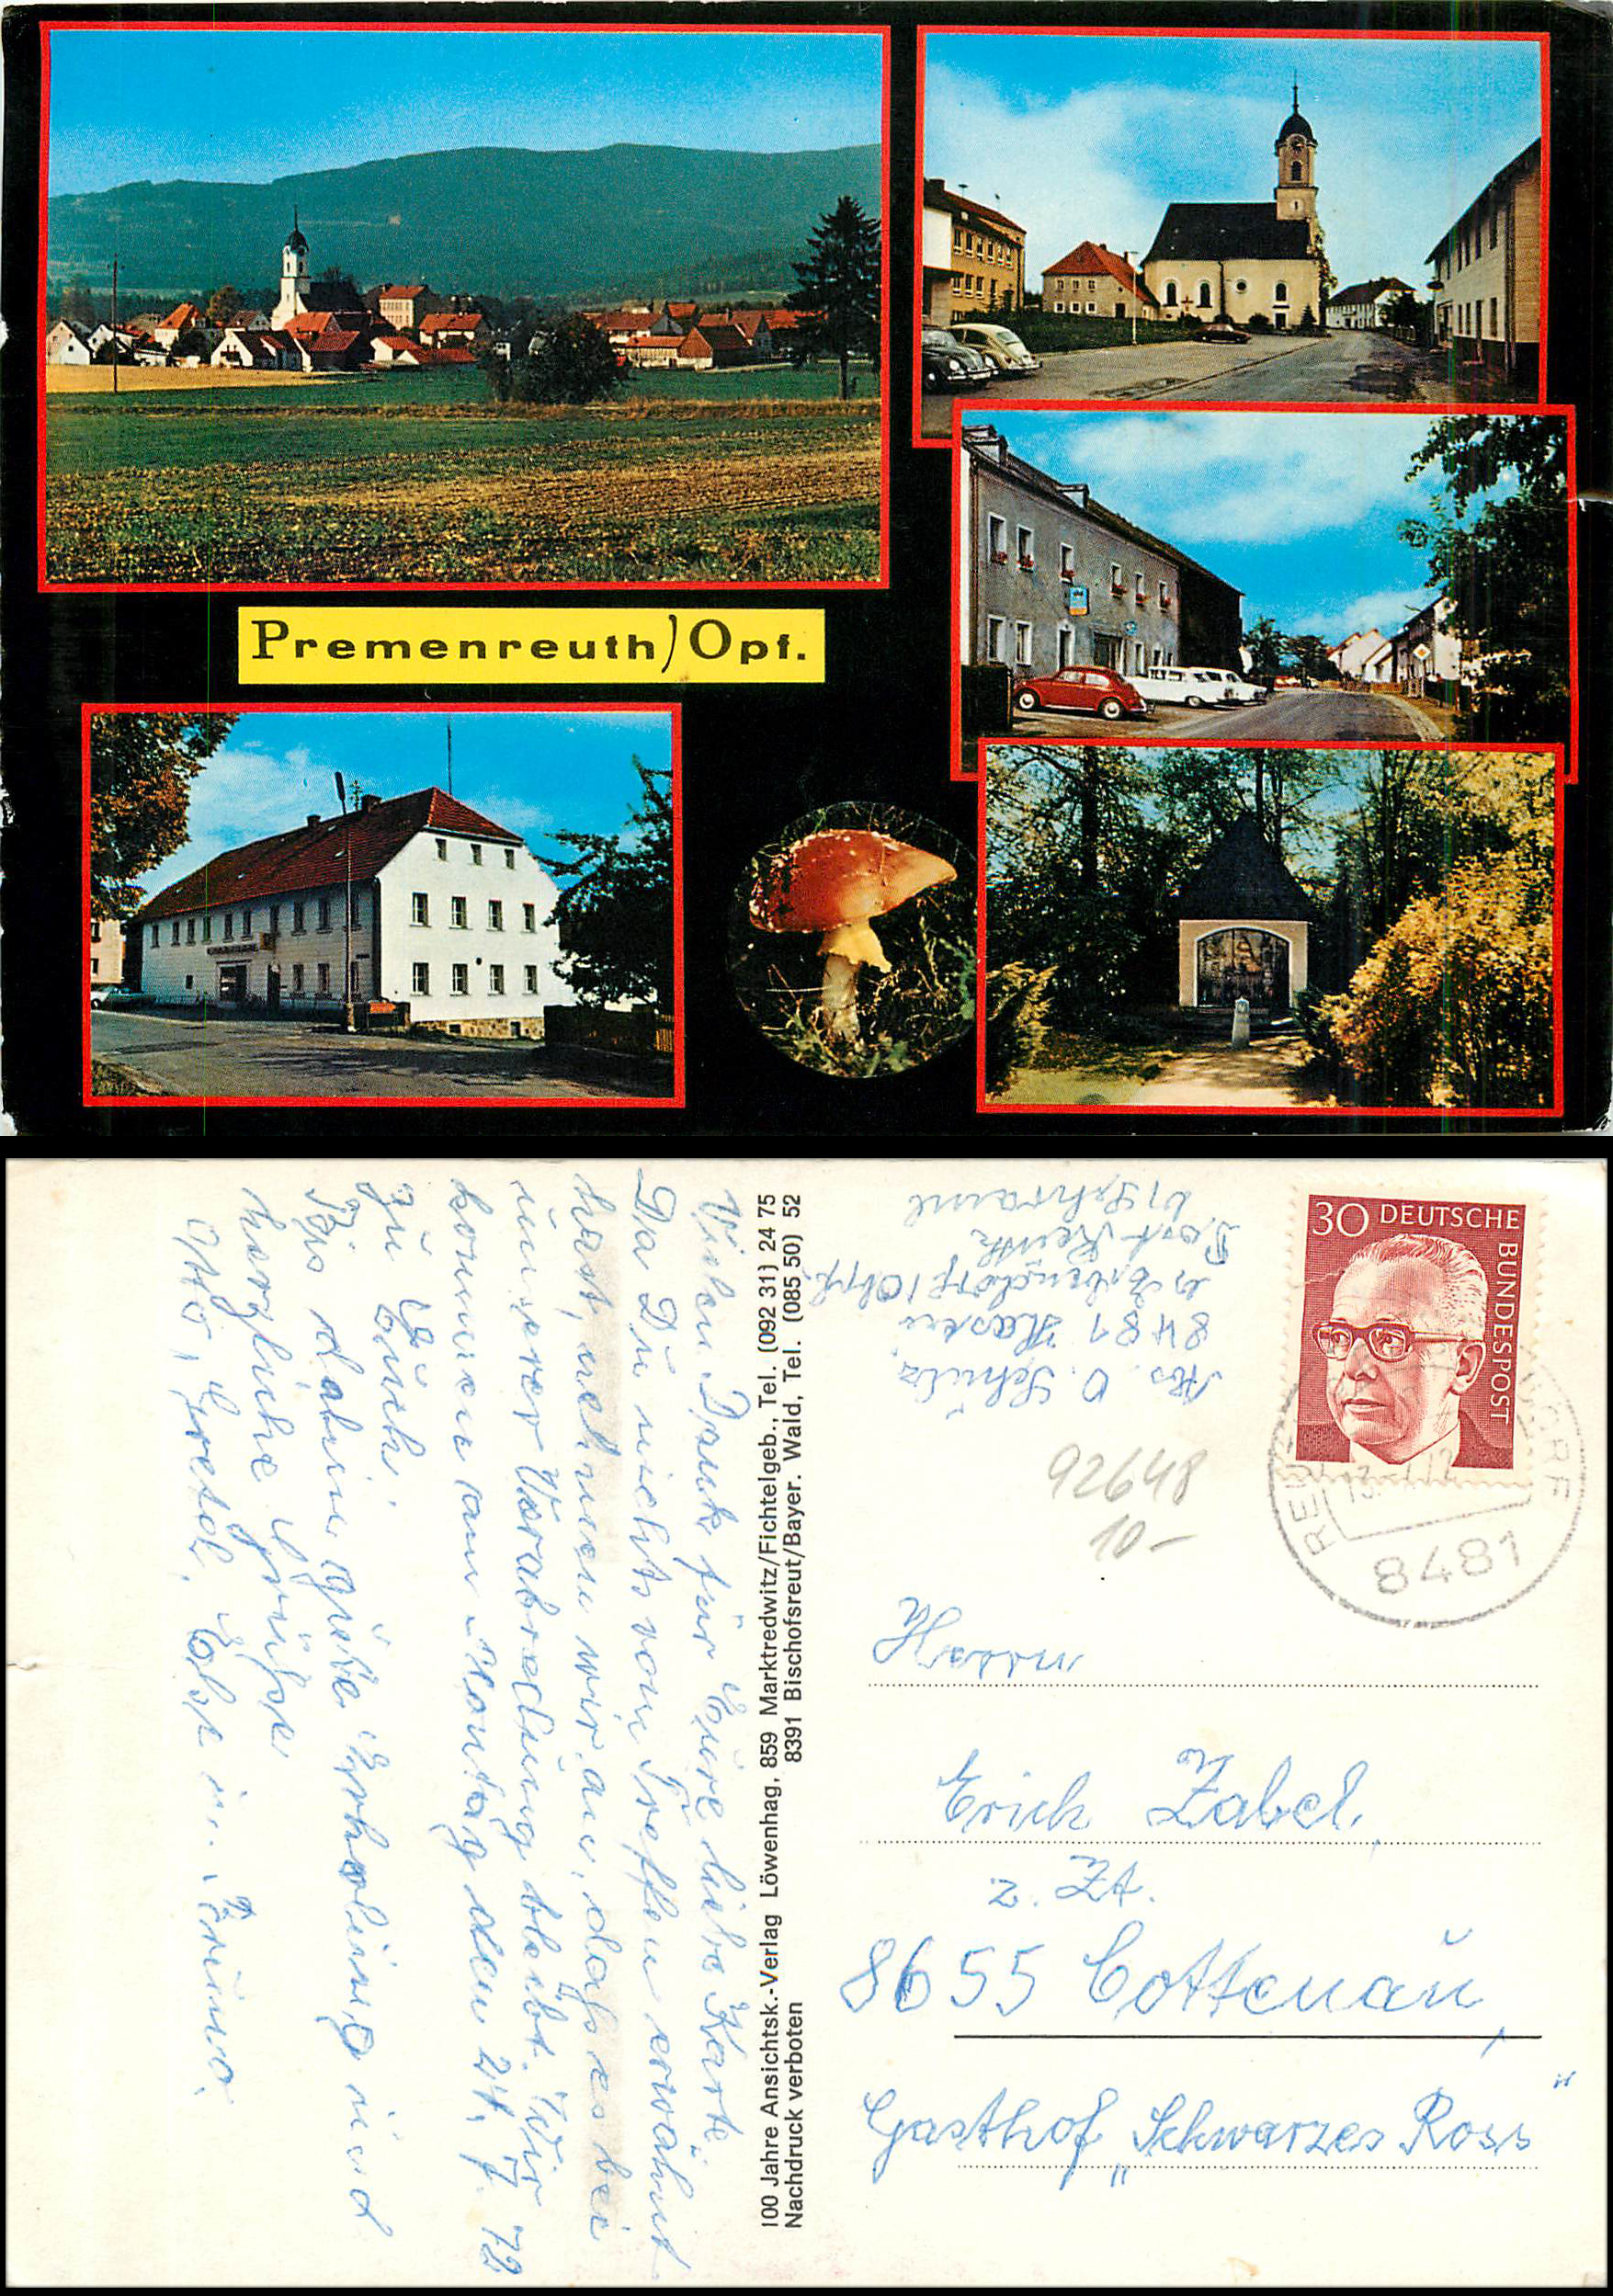 Premenreuth/Opf.
Vielen Dank für Eure liebe Karte.
Da Du nichts vom Treffen erwähnt
hast, nehmen wir an, dass es bei
unserer Verabredung bleibt. Wir
kommen am Montag den 24. 7. 72
zu Euch.
Bis dahin gute Erholung und
herzliche Grüsse
Otto, Gretel, Else u. Bruno.
100 Jahre Ansichtsk.-Verlag Löwenhag, 859 Marktredwitz/Fichtelgeb., Tel. (092 31) 24 75
Nachdruck verboten 8391 Bischofsreut/Bayer. Wald, Tel. (085 50) 52
Abs. O. Schulz
8481
Erbendorf/Opf.
Post Reuth
30 DEUTSCHE BUNDESPOST
8481
92648
10-
Herrn
Erich Zabel
z. Zt.
8655 Cottenau
Gasthof „Schwarzes Ross"